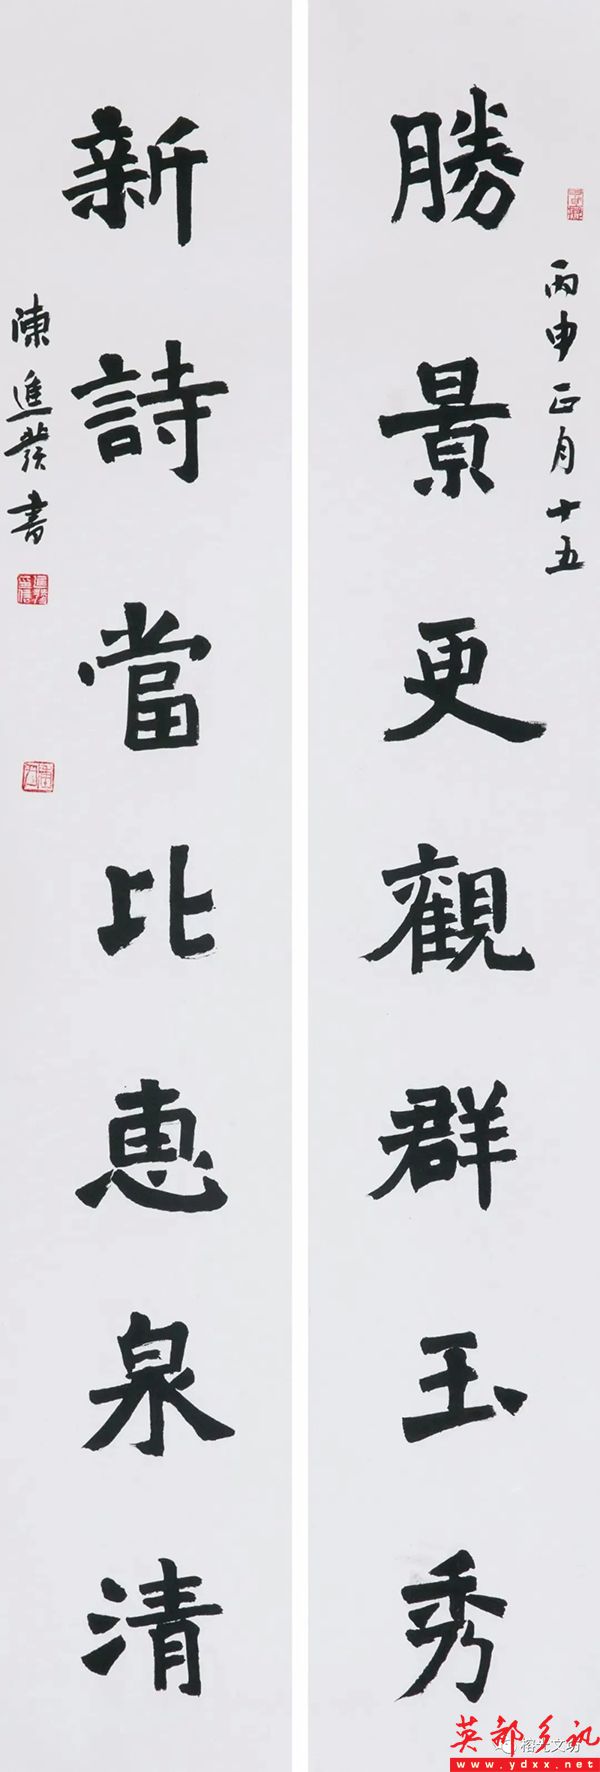 丙申正月十五
勝景更觀群玉秀
新詩當比惠泉清
陳進發書
英都乡讯
www.ydxx.net